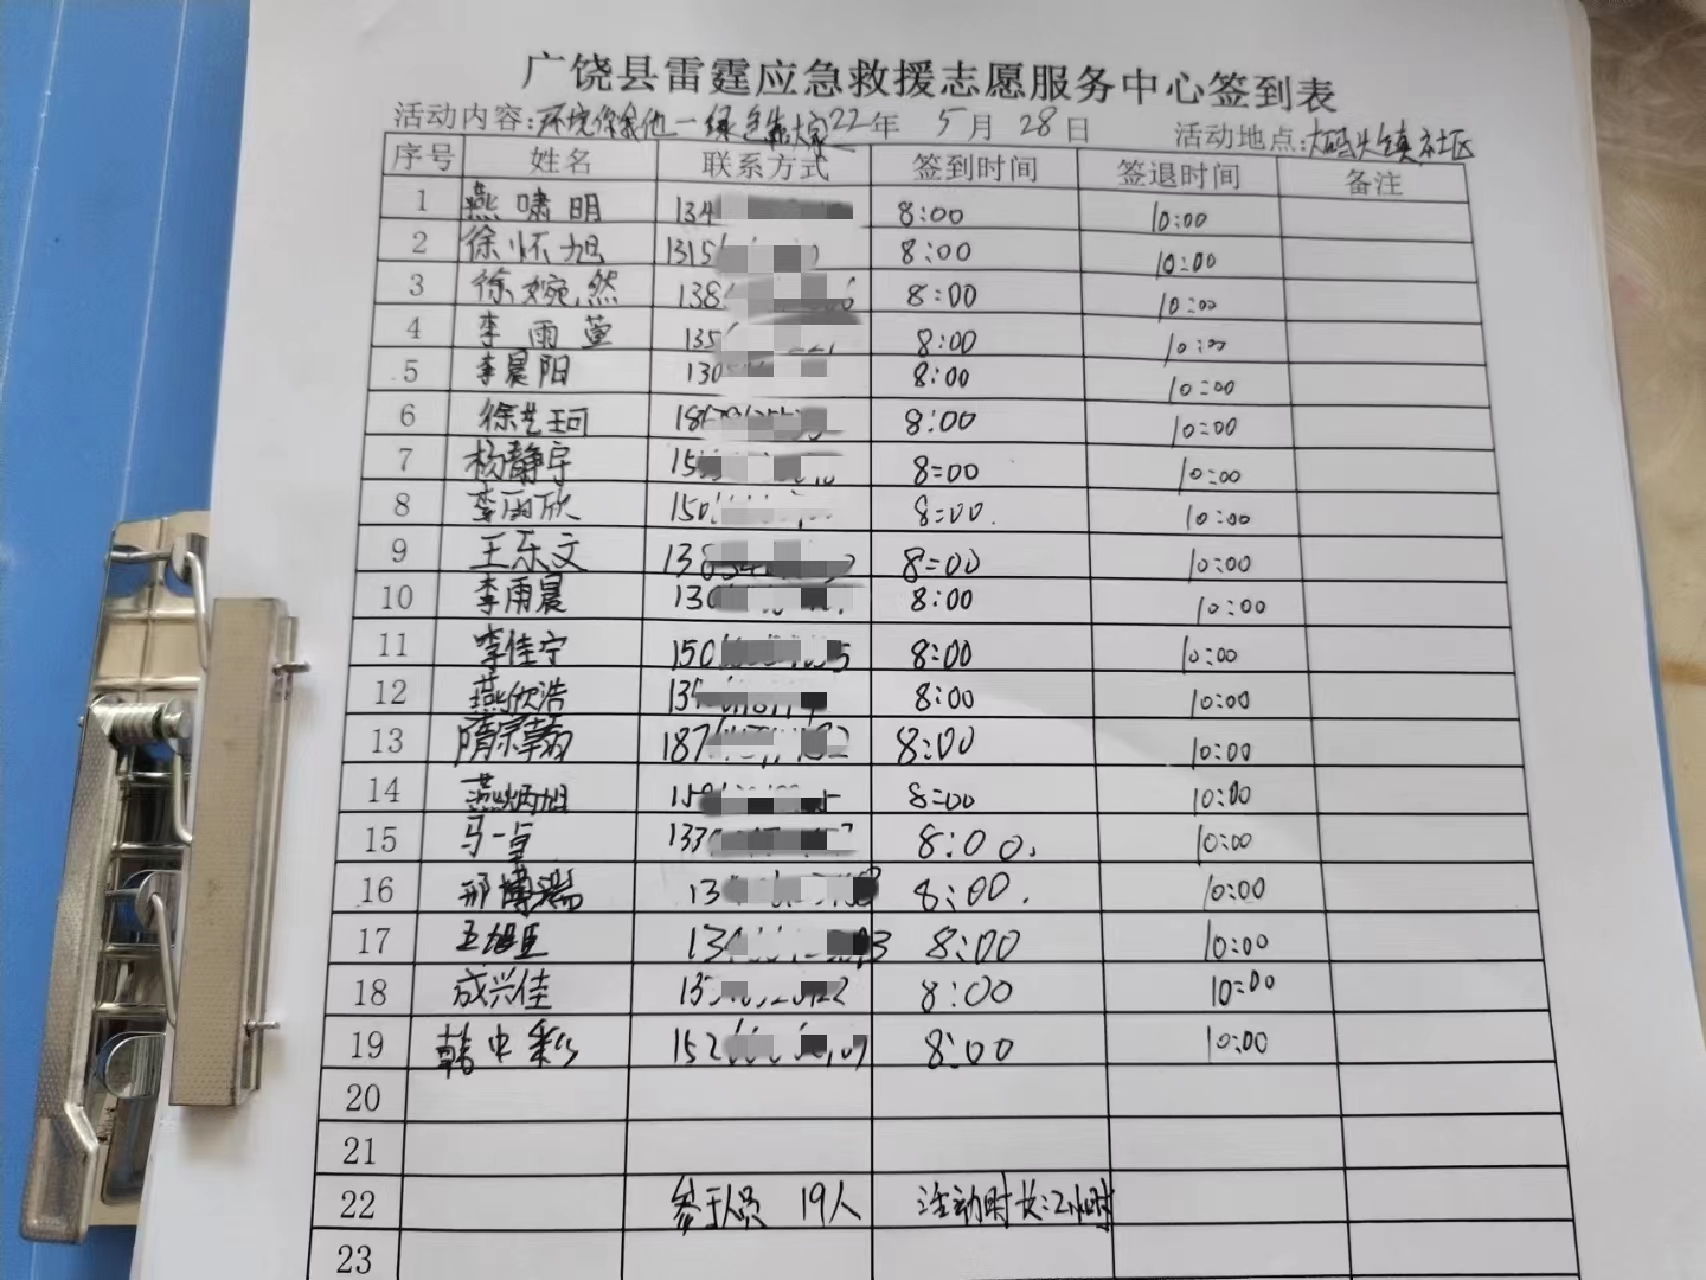 广饶县雷霆应急救援志愿服务中心签到表
活动内容:环境你我他一绿色靠大家 22年 5月 28日 活动地点:大码头镇社区
序号 姓名 联系方式 签到时间 签退时间 备注
1 燕啸明 134 8:00 10:00
2 徐怀旭 1315 8:00 10:00
3 徐婉然 138 8:00 10:00
4 李雨萱 135 8:00 10:00
5 李晨阳 130 8:00 10:00
6 徐艺珂 18 8:00 10:00
7 杨静宇 15 8:00 10:00
8 李雨欣 150 8:00 10:00
9 王乐文 13 8:00 10:00
10 李雨晨 130 8:00 10:00
11 李佳宁 150 5 8:00 10:00
12 燕欣浩 13 8:00 10:00
13 隋宗翰 187 2 8:00 10:00
14 燕炳旭 15 8:00 10:00
15 马一卓 133 8:00 10:00
16 邢博瑞 13 8:00 10:00
17 13 3 8:00 10:00
18 成兴佳 13 22 8:00 10:00
19 韩中彩 152 07 8:00 10:00
20
21
22 参于人员 19人 活动时长:2小时
23